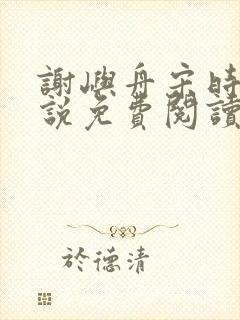 謝嶼舟宋時
說免費閱讀
於德清